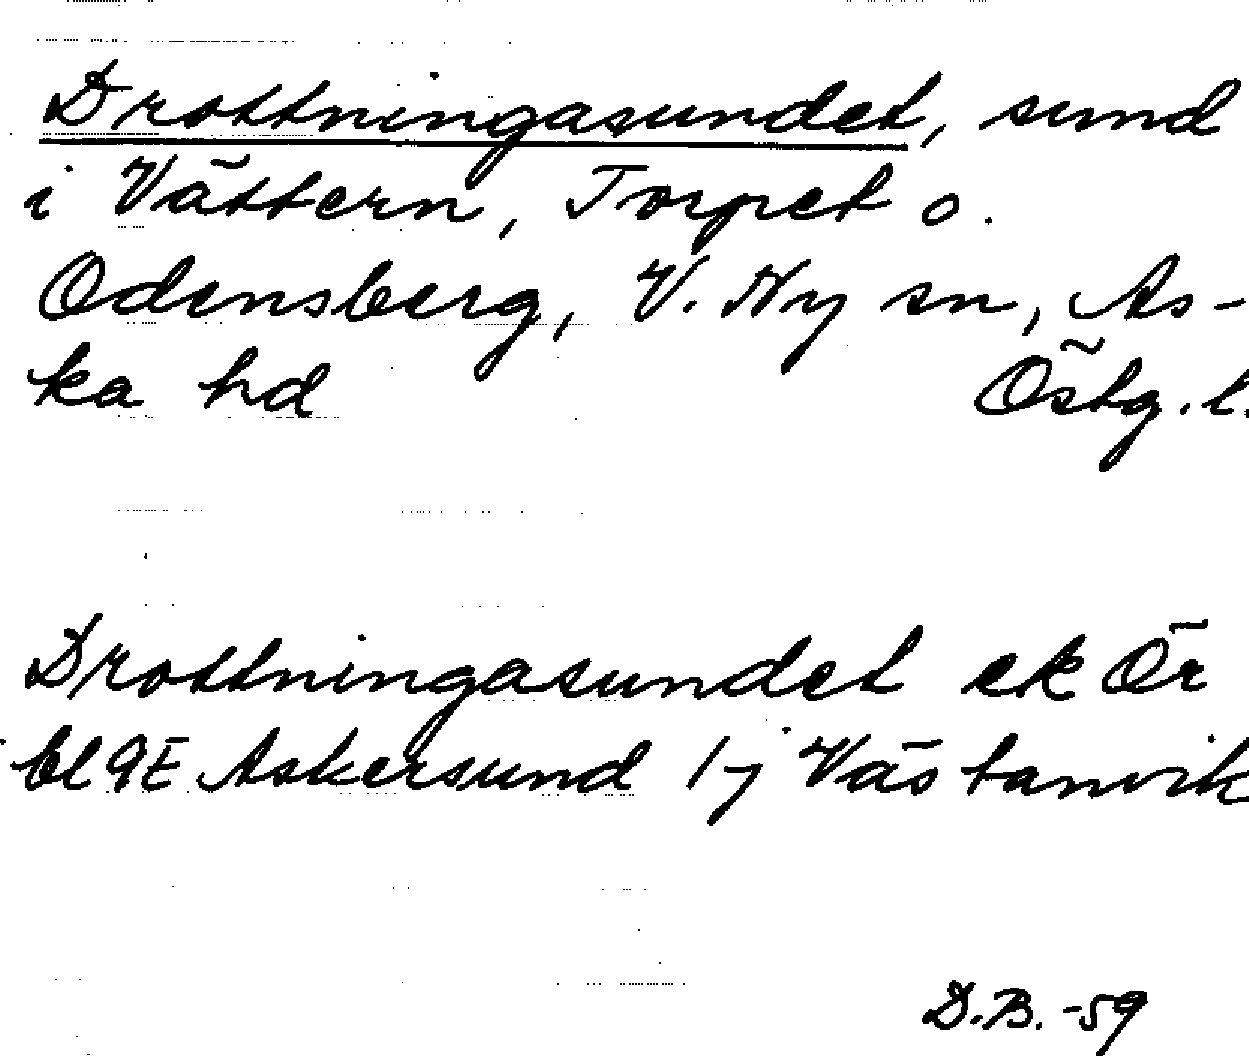 Drottningasundet, sund
i Vättern, Torpet o.
Odensberg, V. Ny sn, As-
ka hd Östg. l.
Drottningasundet ek Ör
bl 9E Askersund 1j Västanvik
D.B. -59